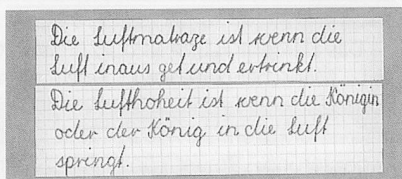 Die Luftmatraze ist wenn die
Luft inaus get und ertrinkt.
Die Lufthoheit ist wenn die Königin
oder der König in die Luft
springt.